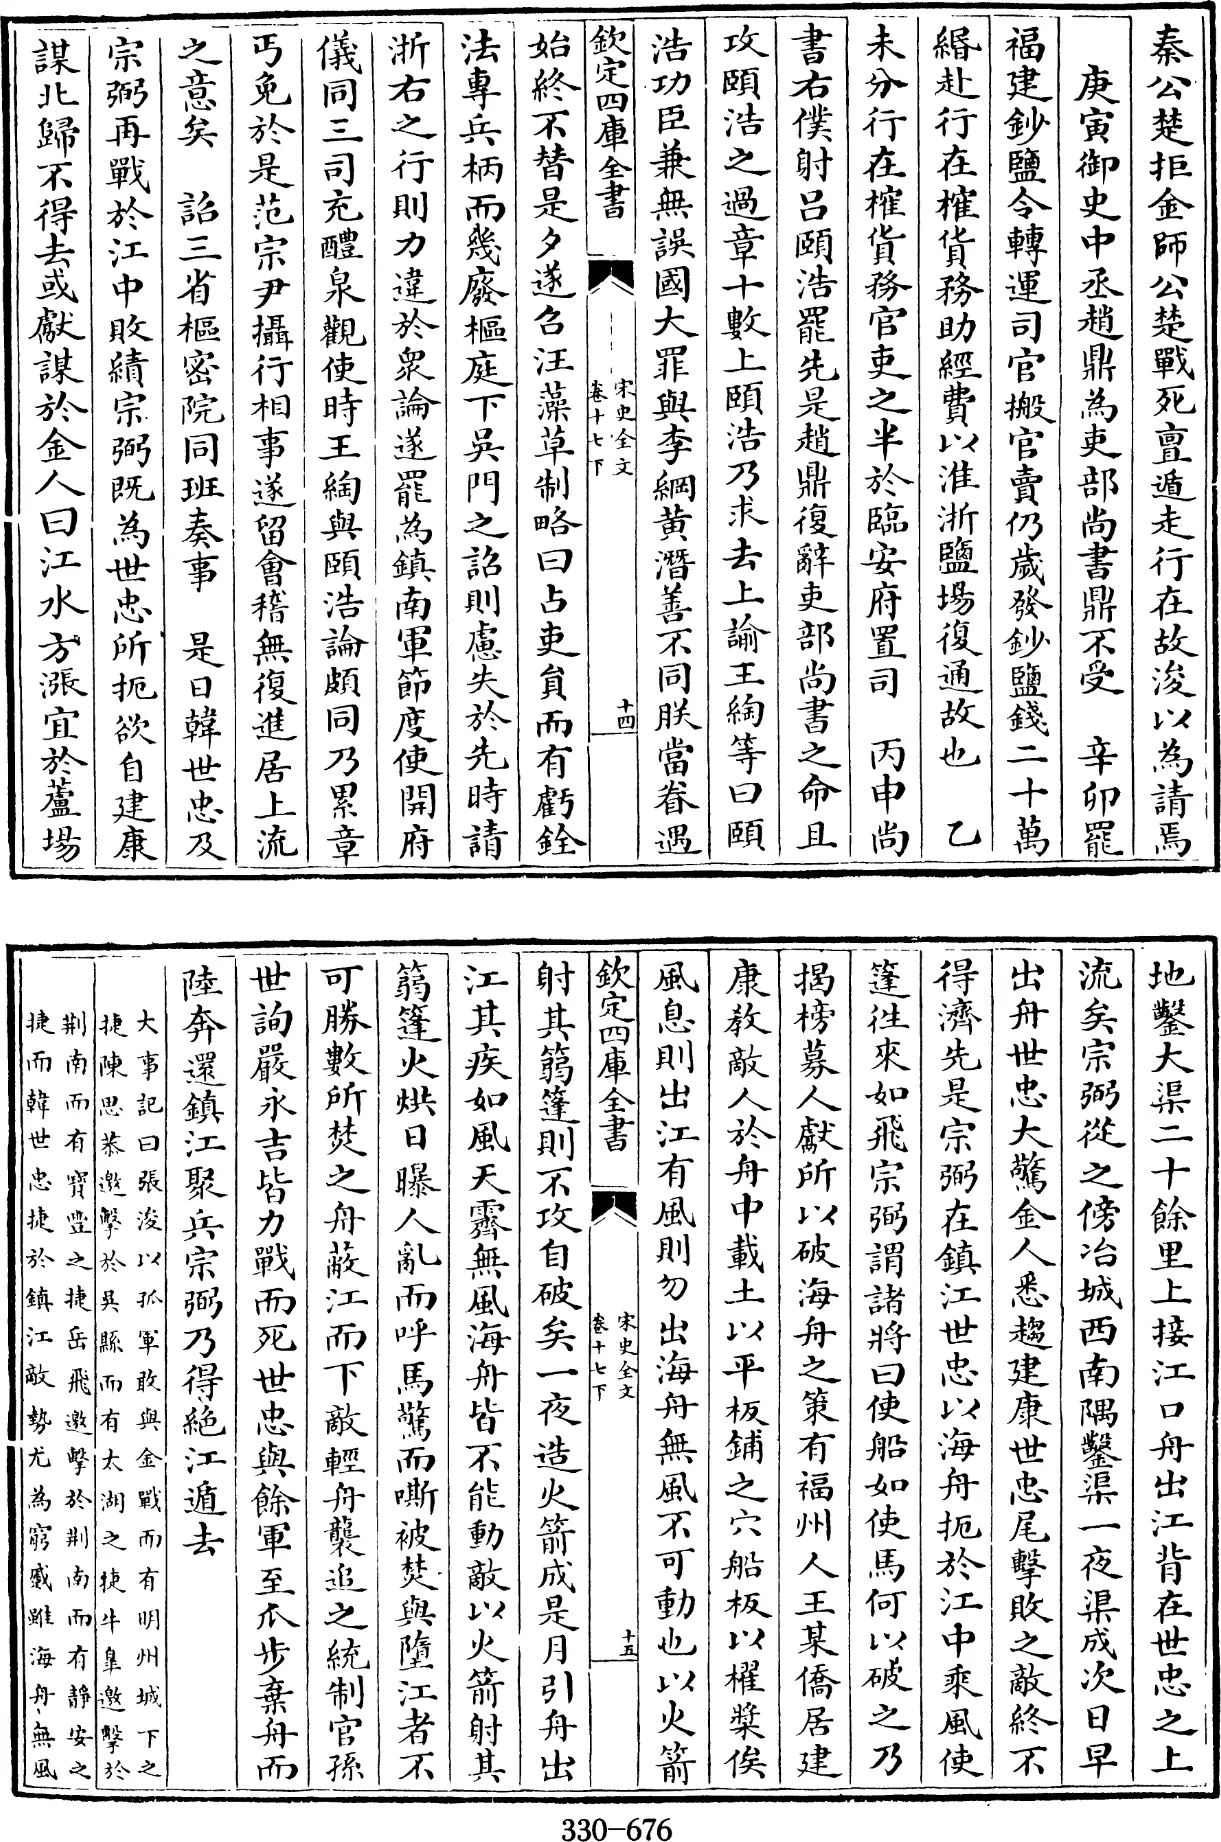 秦公楚拒金師公楚戰死亶遁走行在故浚以為請焉
庚寅御史中丞趙鼎為吏部尚書鼎不受　辛卯罷
福建鈔鹽令轉運司官搬官賣仍歲發鈔鹽錢二十萬
緡赴行在榷貨務助經費以淮浙鹽場復通故也　乙
未分行在榷貨務官吏之半於臨安府置司　丙申尚
書右僕射呂頤浩罷先是趙鼎復辭吏部尚書之命且
攻頤浩之過章十數上頤浩乃求去上諭王綯等曰頤
浩功臣兼無誤國大罪與李綱黃潛善不同朕當眷遇
欽定四庫全書
宋史全文
卷十七下
十四
始終不替是夕遂召汪藻草制略曰占吏員而有虧銓
法專兵柄而幾廢樞庭下吳門之詔則慮失於先時請
浙右之行則力違於衆論遂罷為鎮南軍節度使開府
儀同三司充醴泉觀使時王綯與頤浩論頗同乃累章
丐免於是范宗尹攝行相事遂留會稽無復進居上流
之意矣　詔三省樞密院同班奏事　是日韓世忠及
宗弼再戰於江中敗績宗弼既為世忠所扼欲自建康
謀北歸不得去或獻謀於金人曰江水方漲宜於蘆場
地鑿大渠二十餘里上接江口舟出江背在世忠之上
流矣宗弼從之傍冶城西南隅鑿渠一夜渠成次日早
出舟世忠大驚金人悉趨建康世忠尾擊敗之敵終不
得濟先是宗弼在鎮江世忠以海舟扼於江中乘風使
篷往來如飛宗弼謂諸將曰使船如使馬何以破之乃
揭榜募人獻所以破海舟之策有福州人王某僑居建
康教敵人於舟中載土以平板鋪之穴船板以櫂槳俟
風息則出江有風則勿出海舟無風不可動也以火箭
欽定四庫全書
宋史全文
卷十七下
十五
射其篛篷則不攻自破矣一夜造火箭成是月引舟出
江其疾如風天霽無風海舟皆不能動敵以火箭射其
篛篷火烘日曝人亂而呼馬驚而嘶被焚與墮江者不
可勝數所焚之舟蔽江而下敵輕舟襲追之統制官孫
世詢嚴永吉皆力戰而死世忠與餘軍至瓜步棄舟而
陸奔還鎮江聚兵宗弼乃得絕江遁去
大事記曰張浚以孤軍敢與金戰而有明州城下之
捷陳思恭邀擊於吳縣而有太湖之捷牛皐邀擊於
荆南而有寶豐之捷岳飛邀擊於荆南而有靜安之
捷而韓世忠捷於鎮江敵勢尤為窮蹙雖海舟無風
330-676